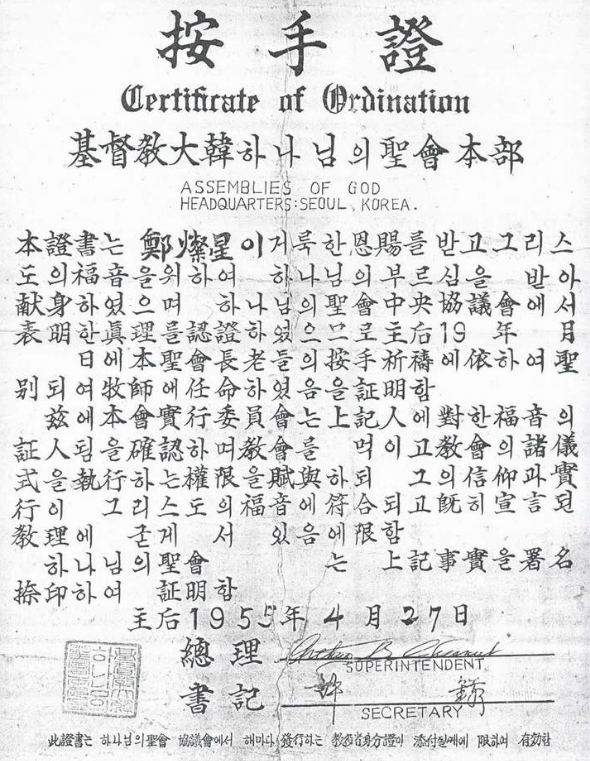 按手證
Certificate of Ordination
基督教大韓하나님의聖會本部
ASSEMBLIES OF GOD
HEADQUARTERS: SEOUL, KOREA.
本證書는 鄭燦星이거룩한恩賜를 받고그리스
도의福音을위하여 하나님의부르심을 받아
献身하였으며 하나님의聖會中央協議會에서
表明한眞理를認證하였으므로主后19 年 月
日에本聖會長老들의按手祈禱에依하여聖
別되여牧師에任命하였음을証明함
玆에本會實行委員會는上記人에對한福音의
証人됨을確認하며教會를 먹이고教會의諸儀
式을執行하는權限을賦與하되 그의信仰과實
行이 그리스도의福音에符合되고旣히宣言된
教理에 굳게 서 있음에限함
하나님의聖會 는 上記事實을署名
捺印하여 証明함
主后1955年 4月27日
總理
SUPERINTENDENT.
書記
SECRETARY
此證書는 하나님의聖會 協議會에서 해마다 發行하는 身分證이 添付될때에 限하여 有効함